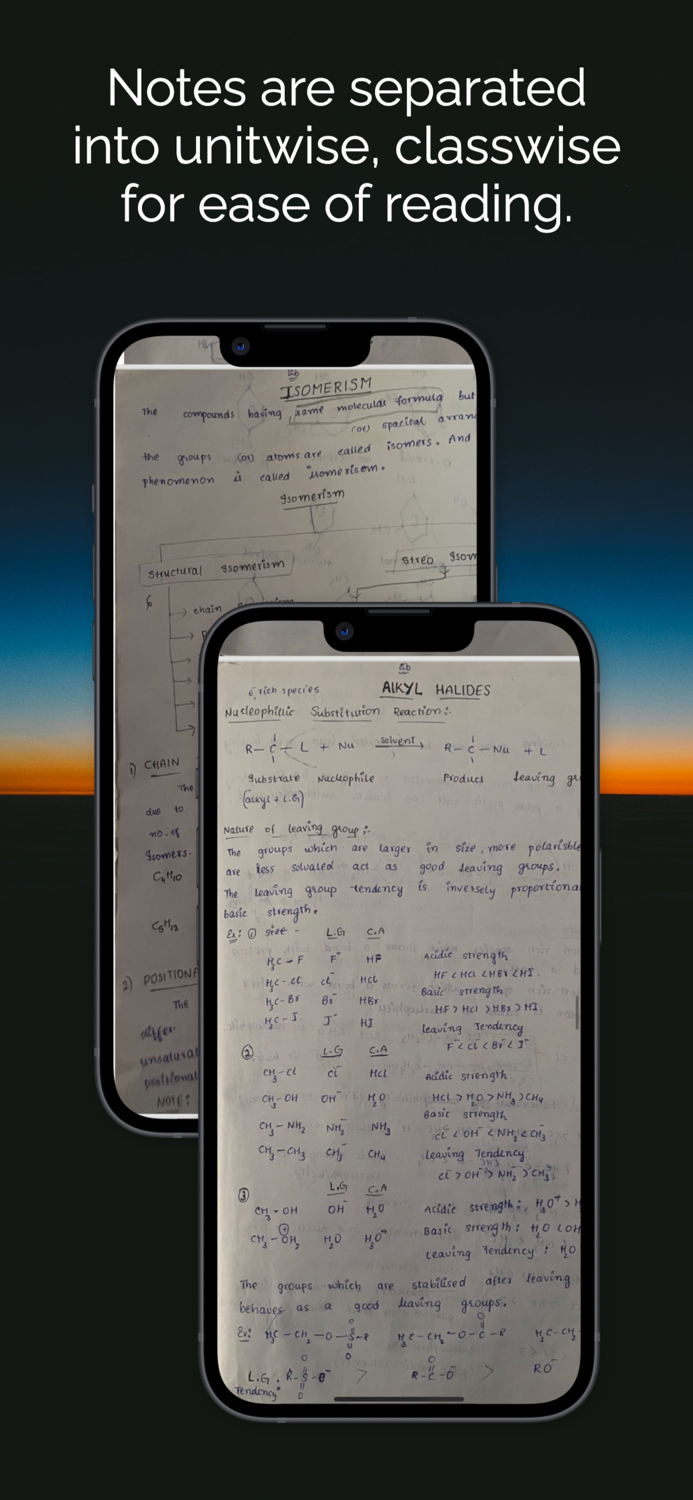 Notes are separated
into unitwise, classwise
for ease of reading.
ISOMERISM
The compounds having same molecular formula but
(or) spacital arran
the groups (or) atoms are called isomers. And
phenomenon is called "isomerisom.
Isomerism
Structural Isomerism
Streo Isom
chain
1) CHAIN
The
due to
no. of
Isomers.
C4H10
C5H12
2) POSITIONA
The
differ.
unsatural
positional
NOTE:
e⁻ rich species
AlKYL HALIDES
Nucleophillic Substitution Reaction:-
R-C-L + Nu solvent→ R-C-Nu + L
Substrate Nucleophile Product leaving gr
(alkyl + L.G)
Nature of leaving group:-
The groups which are larger in size, more polarisble
are less solvated act as good leaving groups.
The leaving group tendency is inversely proportiona
basic strength.
Ex: ① size - L.G C.A
H3C-F F⁻ HF Acidic strength
H3C-Cl Cl⁻ HCl HF < HCl < HBr < HI.
H3C-Br Br⁻ HBr Basic strength
HF > HCl > HBr > HI
H3C-I I⁻ HI leaving Tendency
F⁻ < Cl⁻ < Br⁻ < I⁻
② L.G C.A
CH3-Cl Cl⁻ HCl Acidic strength
CH3-OH OH⁻ H2O HCl > H2O > NH3 > CH4
Basic strength
CH3-NH2 NH2⁻ NH3 Cl⁻ < OH⁻ < NH2⁻ < CH3⁻
CH3-CH3 CH3⁻ CH4 leaving Tendency
Cl⁻ > OH⁻ > NH2⁻ > CH3⁻
③ L.G C.A
CH3-OH OH⁻ H2O Acidic strength: H3O⁺ > H
CH3-OH2 H2O H3O⁺ Basic strength: H2O < OH
leaving Tendency: H2O
The groups which are stabilised after leaving
behaves as a good leaving groups.
Ex: H3C-CH2-O-S-R H3C-CH2-O-C-R H3C-CH2-
L.G. R-S-O⁻ > R-C-O⁻ > RO⁻
Tendency: